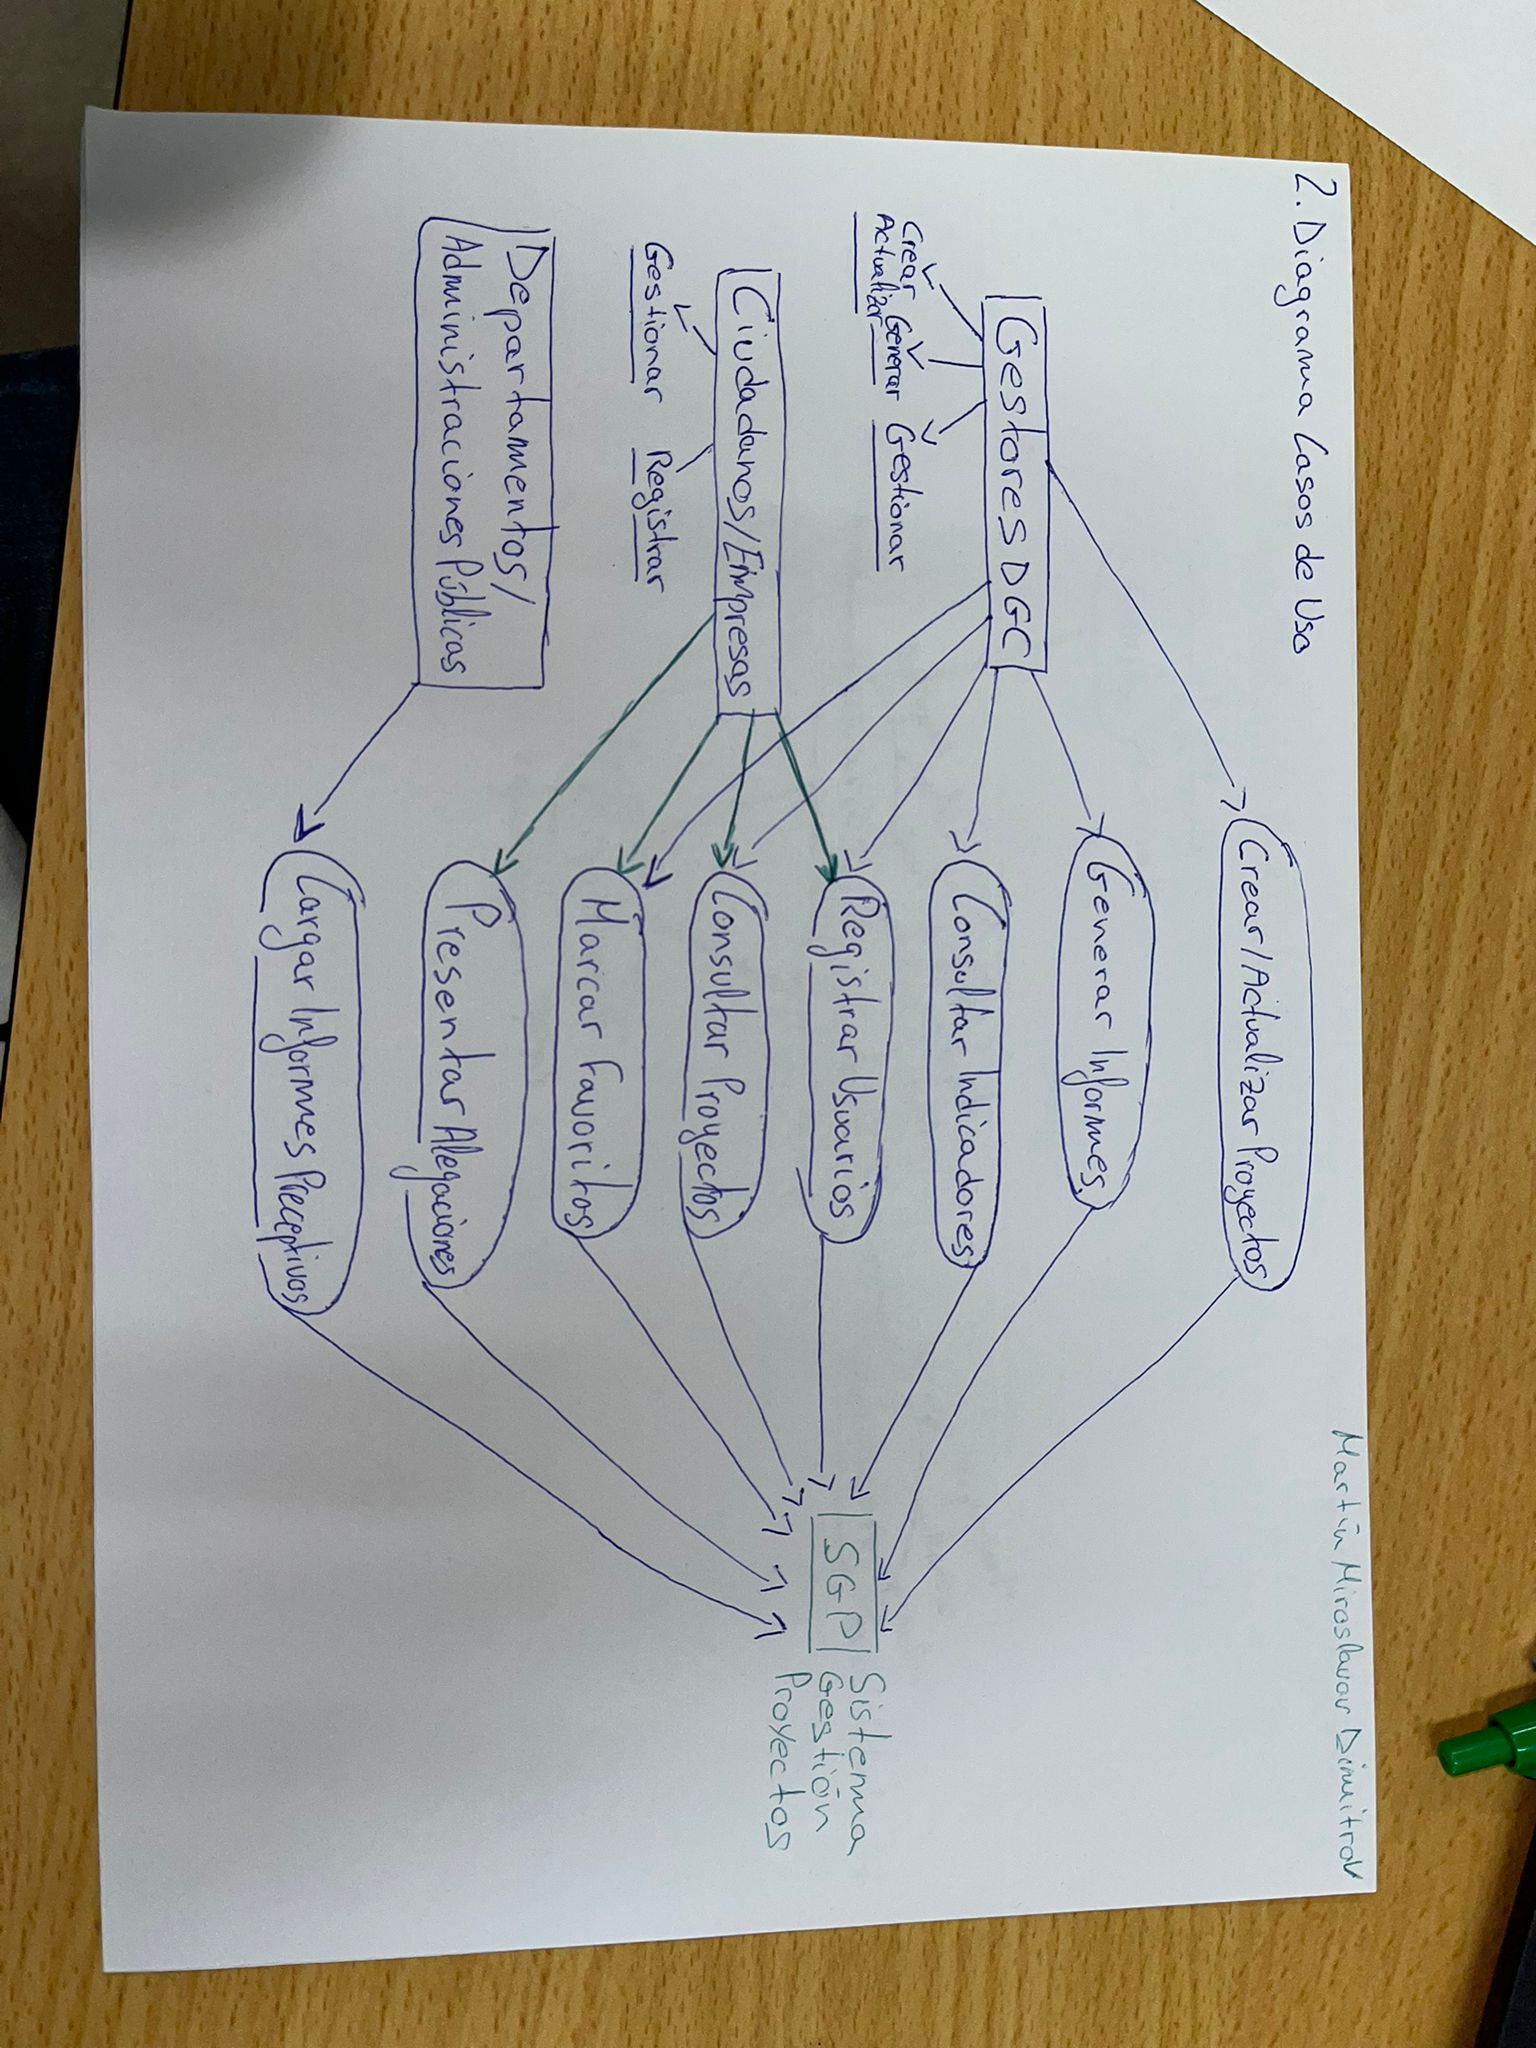 2. Diagrama Casos de Uso
Martín Miroslavov Dimitrov
Gestores DGC
Crear
Actualizar
Generar
Gestionar
Ciudadanos/Empresas
Gestionar
Registrar
Departamentos/
Administraciones Públicas
Crear/Actualizar Proyectos
Generar Informes
Consultar Indicadores
Registrar Usuarios
Consultar Proyectos
Marcar Favoritos
Presentar Alegaciones
Cargar Informes Preceptivos
SGP
Sistema
Gestión
Proyectos